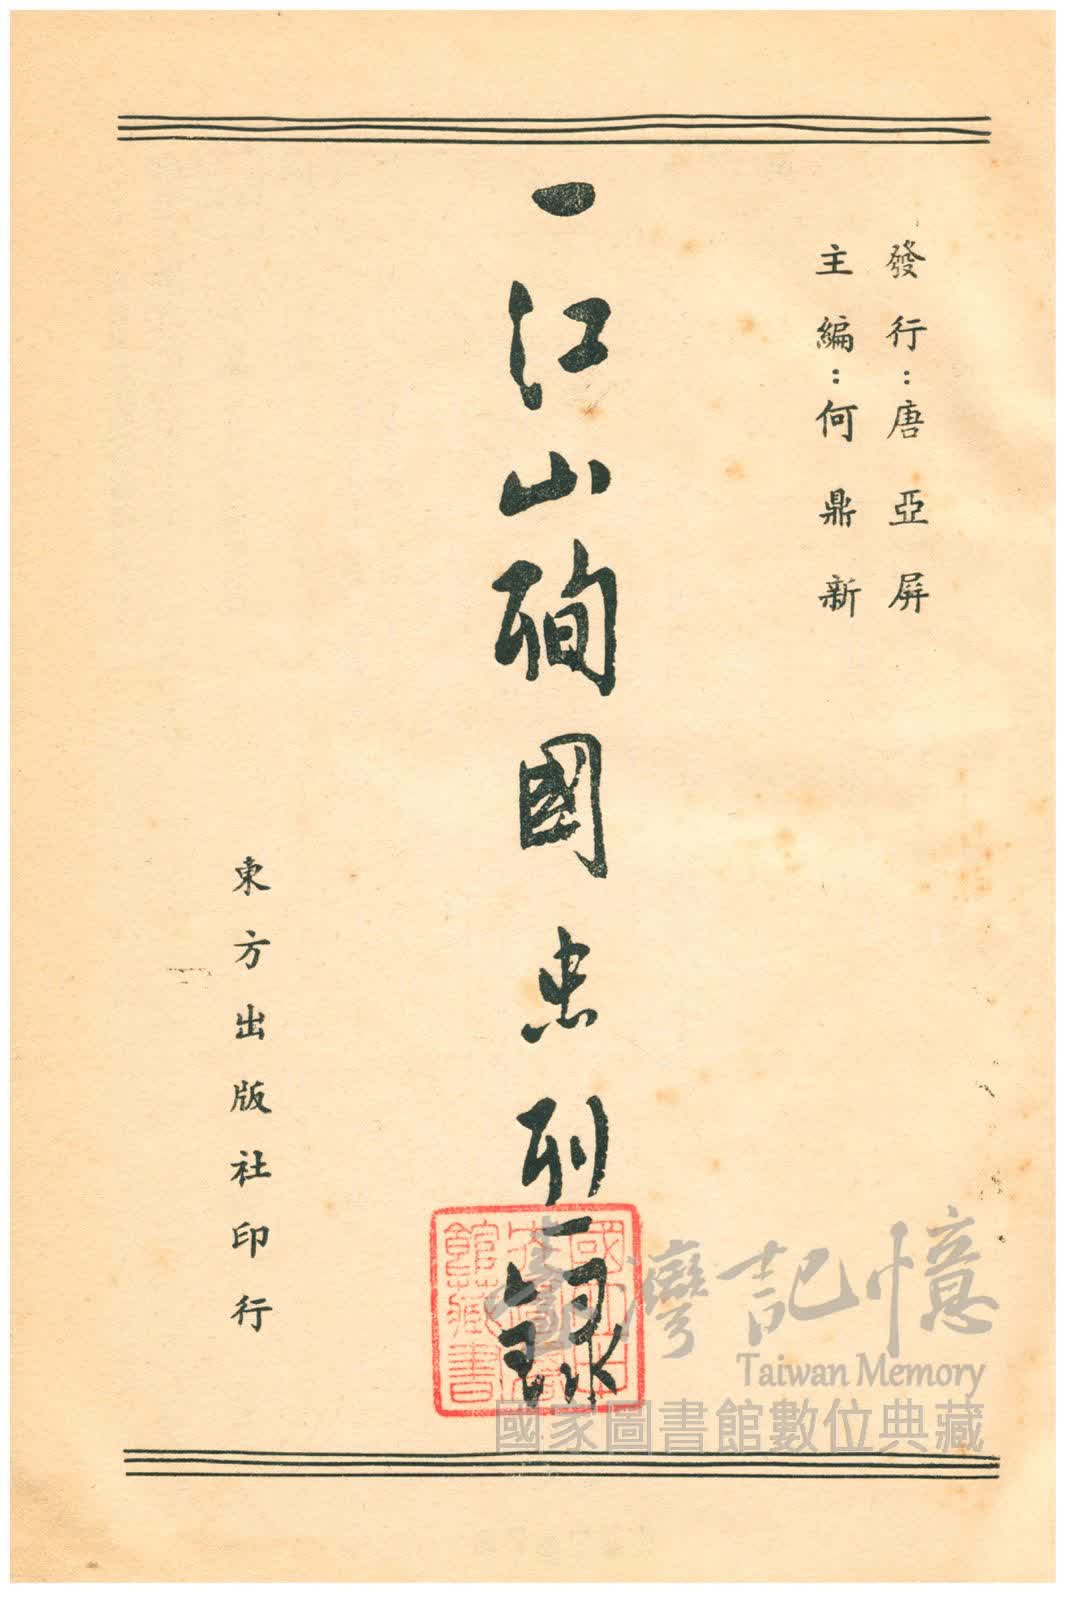 發行：唐亞屏
主編：何鼎新
一江山殉國忠烈錄
東方出版社印行
國立中
央圖書
館藏書
臺灣記憶
Taiwan Memory
國家圖書館數位典藏